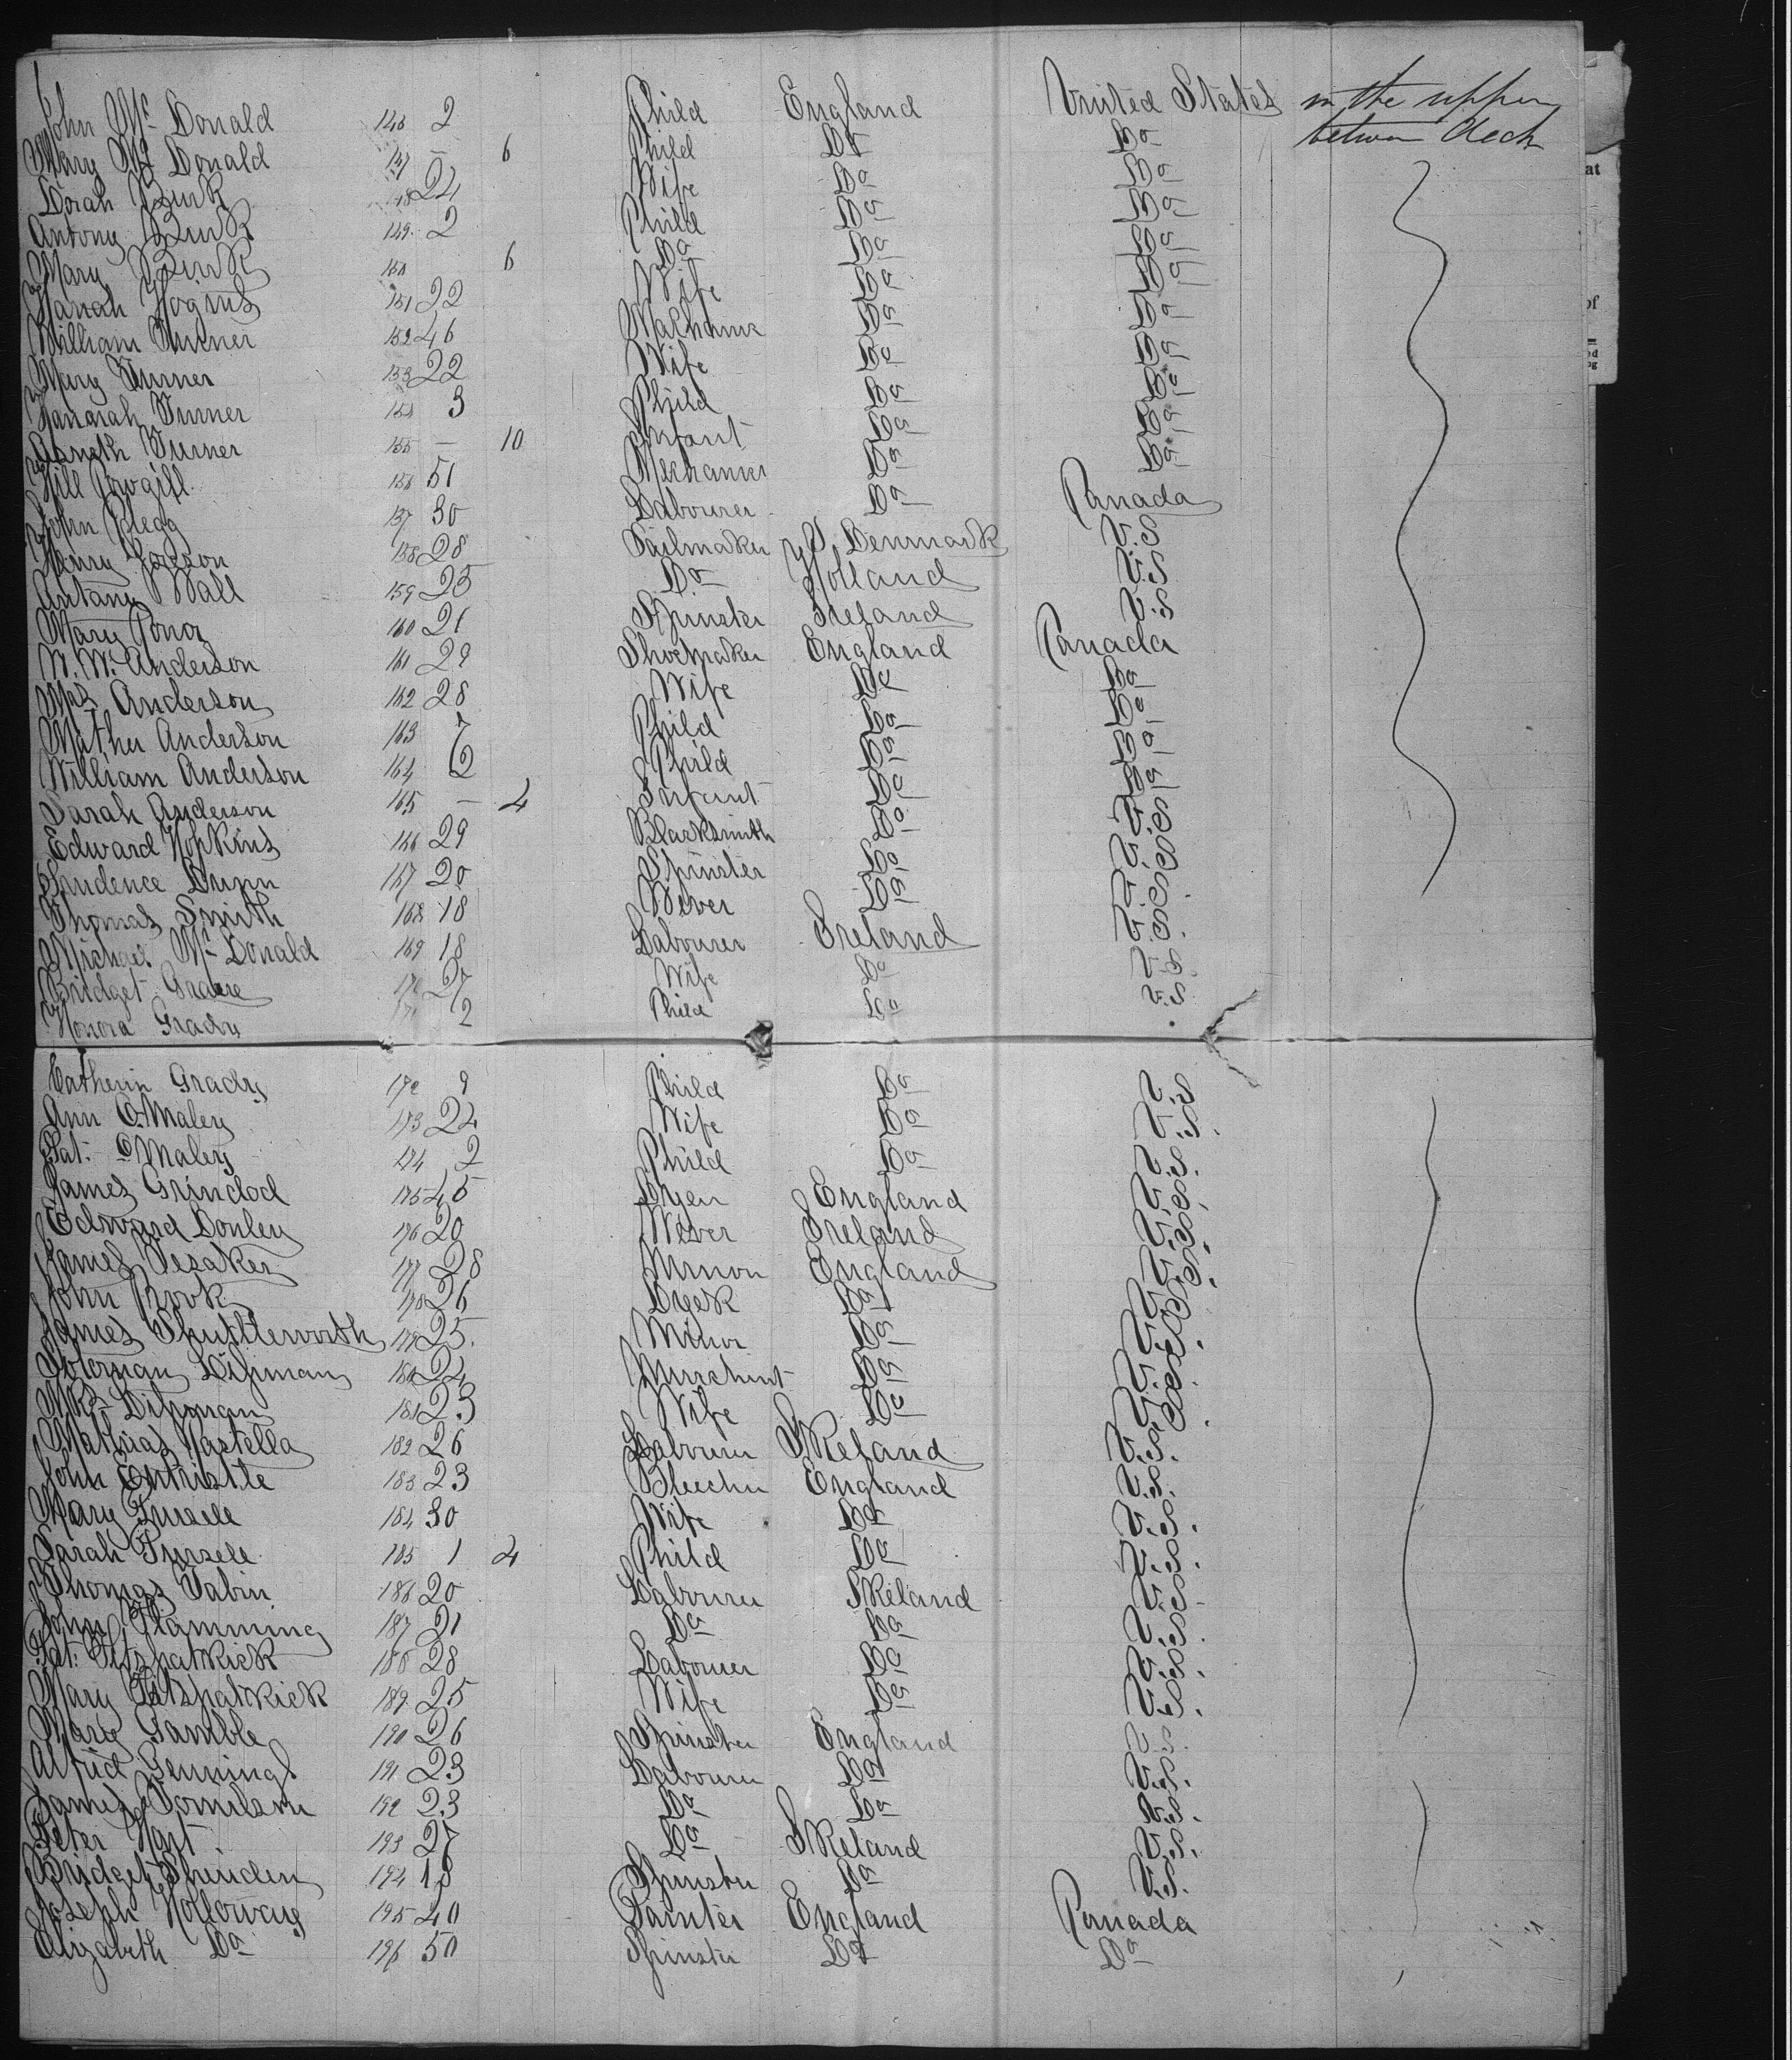 John Mc Donald 146 2 Child England United States in the upper
Mary Mc Donald 147 – 6 Child Do Do between deck
Dorah Burk 148 24 Wife Do Do
Antony Burk 149 2 Child Do Do
Mary Burk 150 6 Do Do Do
Hanah Hogins 151 22 Wife Do Do
William Turner 152 46 Mechanic Do Do
Mary Turner 153 22 Wife Do Do
Hannah Turner 154 3 Child Do Do
Turner 155 – 10 Infant Do Do
Will Cowgill 156 51 Mechanic Do Do
John Clegg 157 30 Labourer Do Canada
Henry 158 28 Sailmaker Denmark U.S
Antany Wall 159 25 Do Holland U.S
Mary 160 21 Spinster Ireland U.S
W. W. Anderson 161 29 Shoemaker England Canada
Mrs Anderson 162 28 Wife Do Do
Mather Anderson 163 7 Child Do Do
William Anderson 164 2 Child Do Do
Sarah Anderson 165 – 4 Infant Do Do
Edward Hopkins 166 29 Blacksmith Do U.S
Prudence Dunn 167 20 Spinster Do U.S
Thomas Smith 168 18 Wever Do U.S
Michael Mc Donald 169 18 Labourer Ireland U.S
Bridget 170 27 Wife Do U.S
Honora Grady 171 2 Child Do U.S
Catherin Grady 172 9 Child Do U.S
Ann O.Maley 173 24 Wife Do U.S.
Pat. O Maley 174 2 Child Do U.S.
James Grindod 175 45 Dyer England U.S.
Edward Donley 176 20 Wever Ireland U.S.
James Tesaker 177 28 England U.S.
John Crook 178 26 Do U.S.
James Shuttleworth 179 25 Do U.S.
Soloman Lipman 180 24 Do U.S.
Mrs Lipman 181 23 Wife Do U.S.
Mathias Nastella 182 26 Labourer IReland U.S.
John Entristle 183 23 Bleecher England U.S.
Mary 184 30 Wife Do U.S.
Sarah 185 1 4 Child Do U.S.
Thomas Tabin 186 20 Labourer IReland U.S.
John Flamming 187 21 Do Do U.S.
Pat. Fitspatkick 188 28 Labourer Do U.S.
Mary Fitspatkick 189 25 Wife Do U.S.
Mary Gamble 190 26 Spinster England U.S.
Alfrid Jennings 191 23 Labourer Do U.S.
James 192 23 Do Do U.S.
Peter Hart 193 27 Do IReland U.S.
Bridget 194 18 Spinster Do U.S.
Joseph Holloway 195 40 Painter England Canada
Elizabeth Do 196 50 Spinster Do Do
at
of